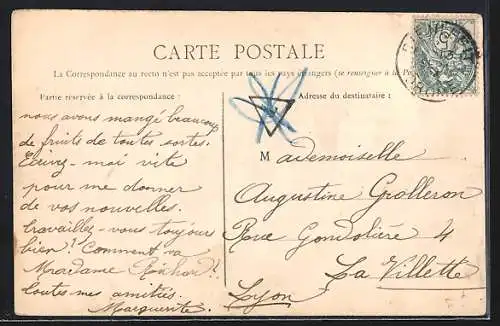 CARTE POSTALE
La Correspondance au recto n'est pas acceptée par tous les pays étrangers (se renseigner à la Po
Partie réservée à la correspondance :
Adresse du destinataire :
nous avons mangé beaucoup
de fruits de toutes sortes.
Ecrivez-moi vite
pour me donner
de vos nouvelles.
travaillez-vous toujours
bien? Comment va
Madame
toutes mes amitiés.
Marguerite.
Mademoiselle
Augustine Grolleron
Rue Gondolière 4
La Villette
Lyon